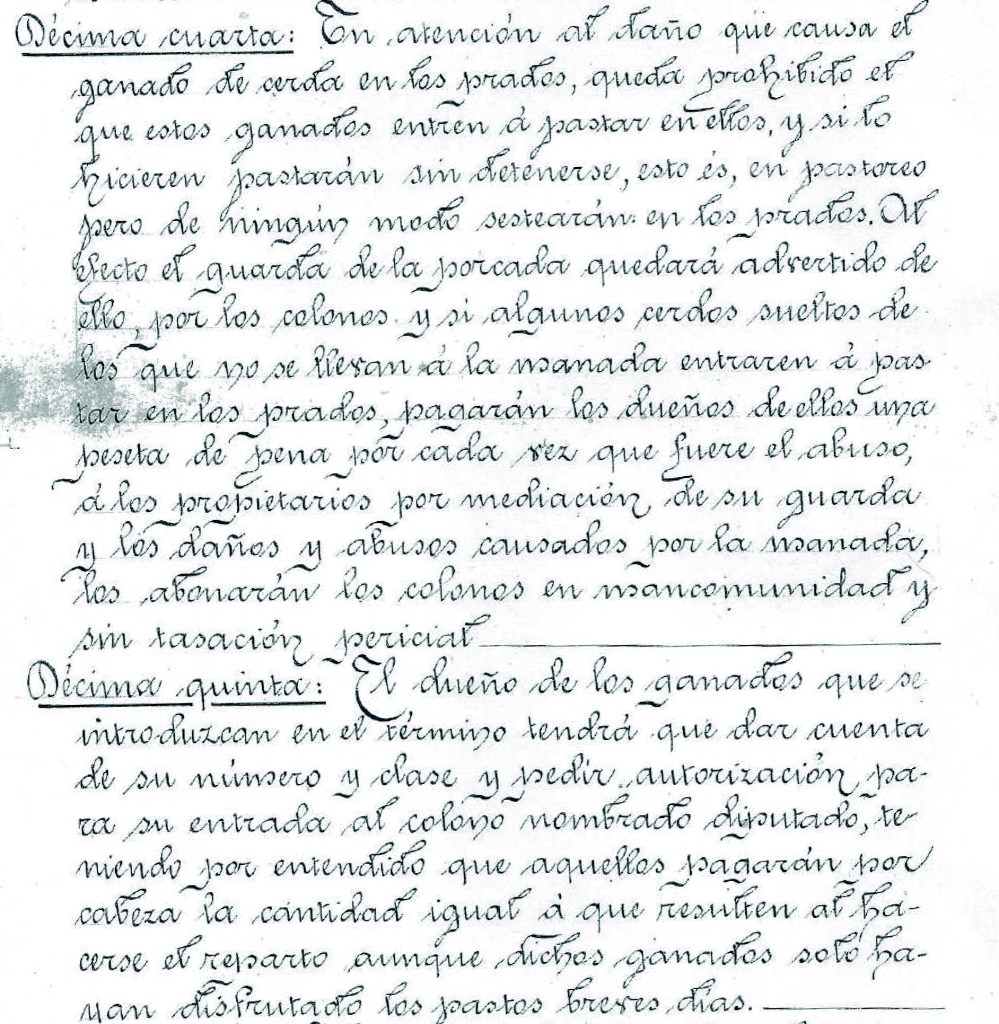 Décima cuarta: En atención al daño que causa el
ganado de cerda en los prados, queda prohibido el
que estos ganados entren á pastar en ellos, y si lo
hicieren pastarán sin detenerse, esto és, en pastoreo
pero de ningún modo sestearán en los prados. Al
efecto el guarda de la porcada quedará advertido de
ello, por los colonos y si algunos cerdos sueltos de
los que no se llevan á la manada entraren á pas-
tar en los prados, pagarán los dueños de ellos una
peseta de pena por cada vez que fuere el abuso,
á los propietarios por mediación de su guarda
y los daños y abusos causados por la manada,
los abonarán los colonos en mancomunidad y
sin tasación pericial
Décima quinta: El dueño de los ganados que se
introduzcan en el término tendrá que dar cuenta
de su número y clase y pedir autorización pa-
ra su entrada al colono nombrado diputado, te-
niendo por entendido que aquellos pagarán por
cabeza la cantidad igual á que resulten al ha-
cerse el reparto aunque dichos ganados solo ha-
yan disfrutado los pastos breves días.